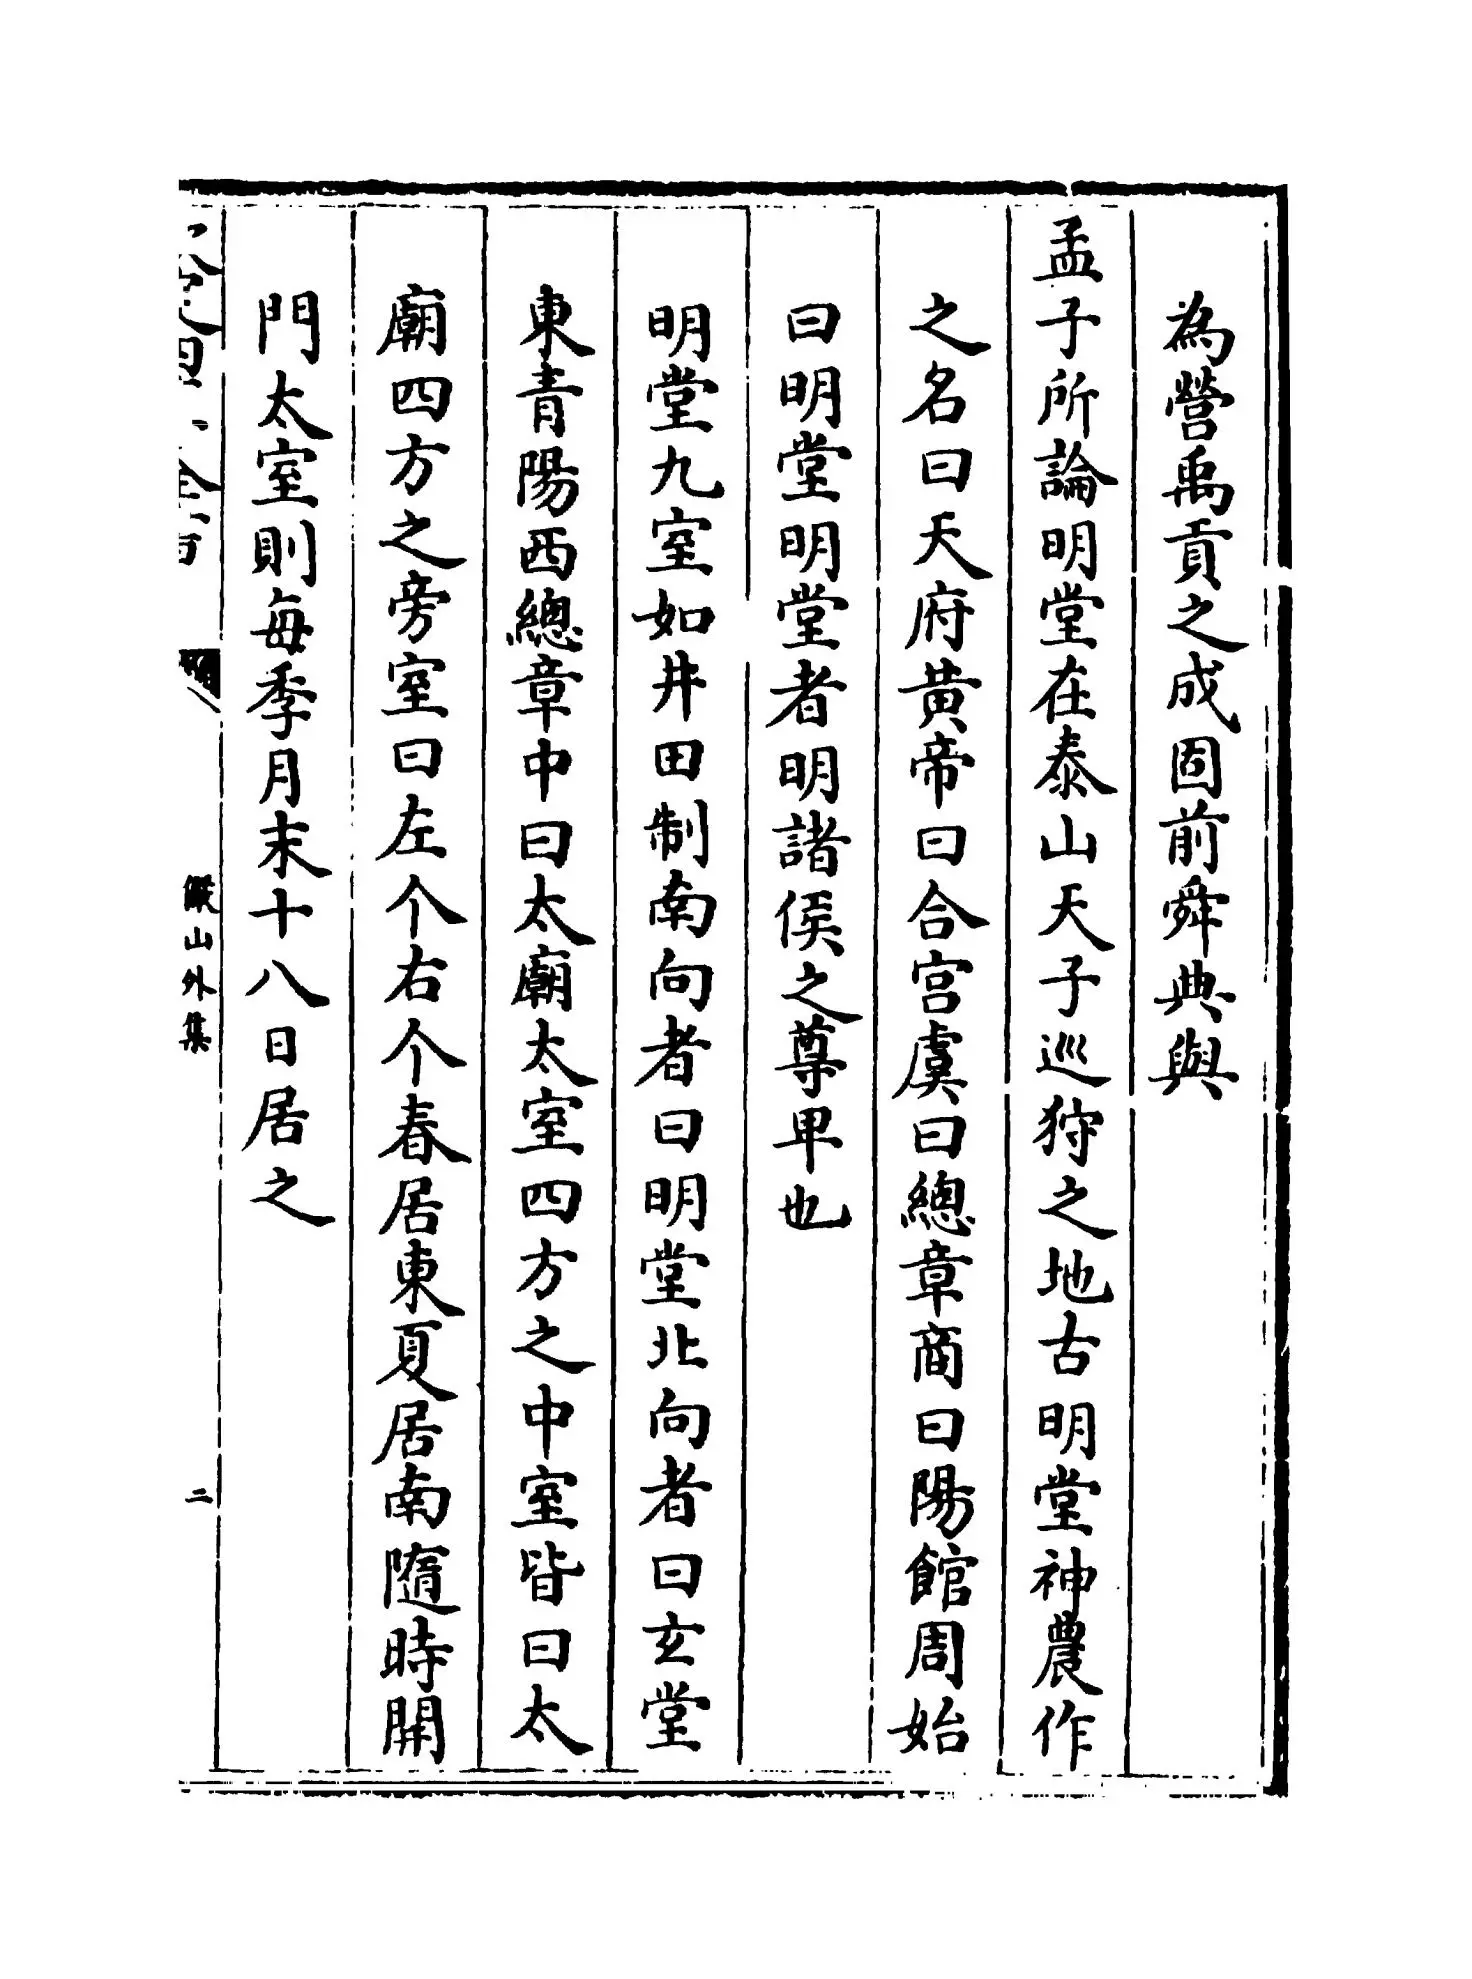 為營禹貢之成固前舜典與
孟子所論明堂在泰山天子巡狩之地古明堂神農作
之名曰天府黄帝曰合宫虞曰總章商曰陽館周始
曰明堂明堂者明諸侯之尊卑也
明堂九室如井田制南向者曰明堂北向者曰玄堂
東青陽西總章中曰太廟太室四方之中室皆曰太
廟四方之旁室曰左个右个春居東夏居南隨時開
門太室則每季月末十八日居之
儼山外集
二